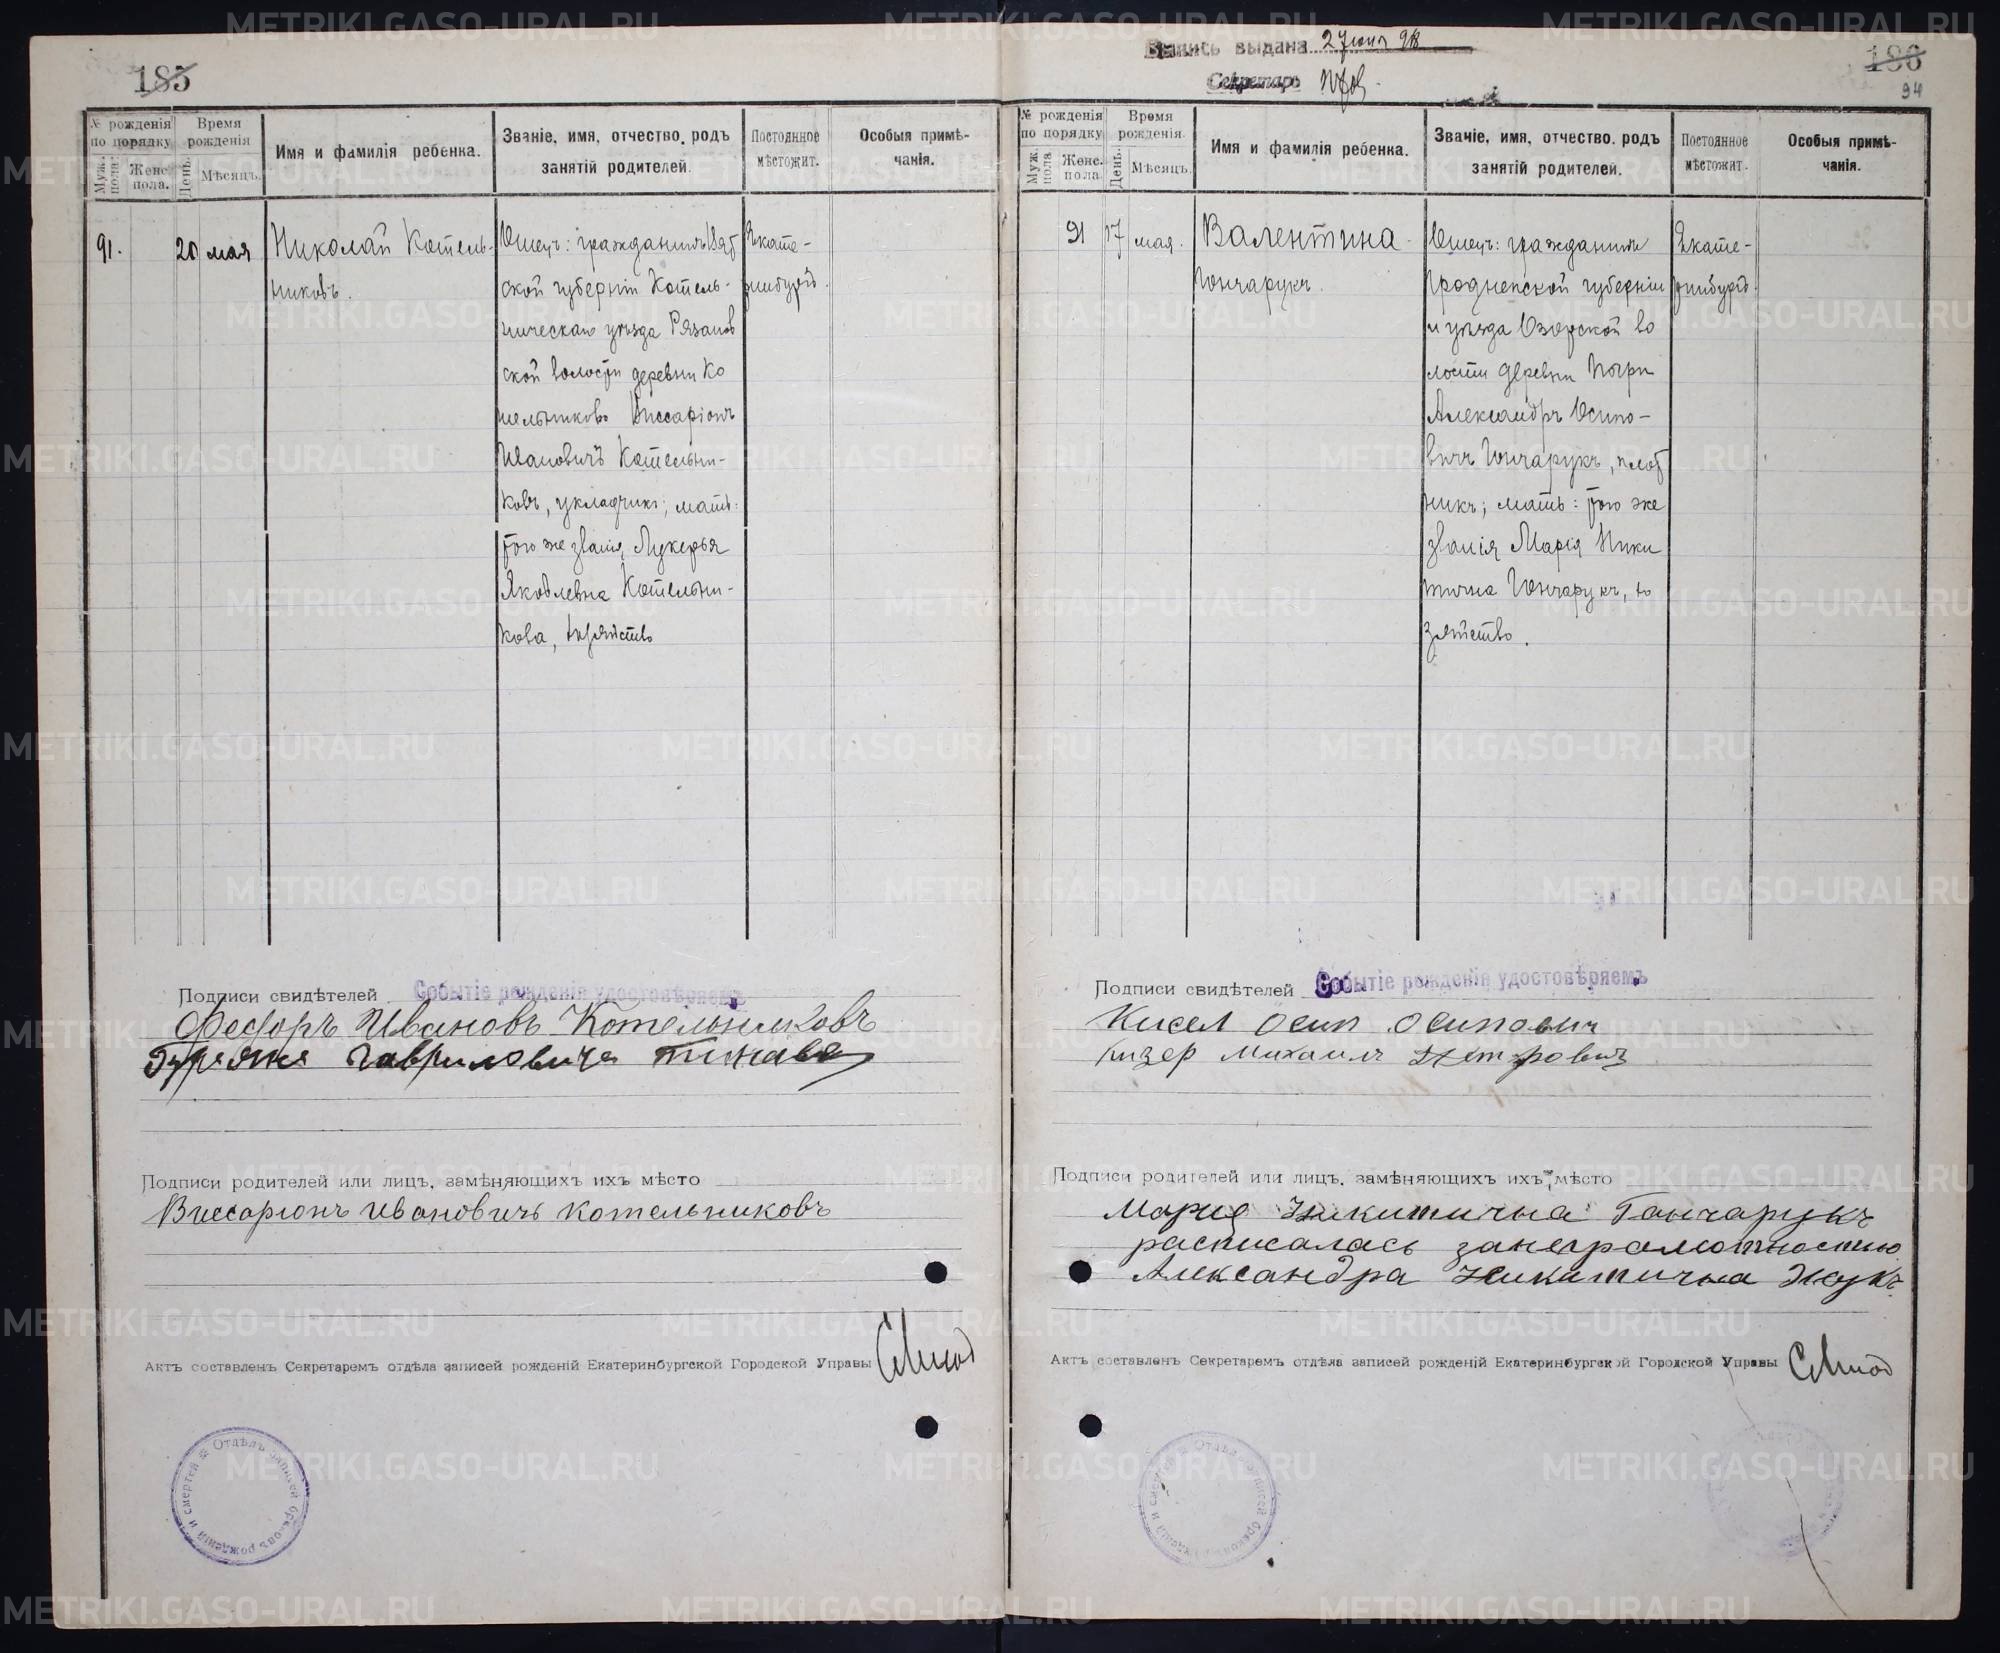 185
№ рожденія по порядку
Время рожденія
Имя и фамилія ребенка.
Званіе, имя, отчество, родъ занятій родителей.
Постоянное мѣстожит.
Особыя примѣ-
чанія.
Муж. пола.
Женс. пола.
День.
Мѣсяцъ.
91.
20 мая
Николай Котель-
никовъ.
Отецъ: гражданинъ Вят
ской губерніи Котель-
ническаго уѣзда Рязанов
ской волости деревни Ко
тельниково Виссаріонъ
Ивановичъ Котельни-
ковъ, укладчикъ; мать:
того же званія Лукерья
Яковлевна Котельни-
кова, хозяйство
Екате-
ринбургъ.
Подписи свидѣтелей
Событіе рожденія удостовѣряемъ
Федоръ Ивановъ Котельниковъ
Гавриловичъ
Подписи родителей или лицъ, замѣняющихъ ихъ мѣсто
Виссаріонъ Ивановичъ Котельниковъ
Актъ составленъ Секретаремъ отдѣла записей рожденій Екатеринбургской Городской Управы
Отдѣлъ записей браковъ рожденій и смертей
Выпись выдана 27
Секретарь
186
94
№ рожденія по порядку
Время рожденія.
Имя и фамилія ребенка.
Званіе, имя, отчество, родъ занятій родителей.
Постоянное мѣстожит.
Особыя примѣ-
чанія.
Муж. пола
Женс. пола
День.
Мѣсяцъ.
91
17 мая.
Валентина
Гончарукъ.
Отецъ: гражданинъ
Гродненской губерніи
и уѣзда Озерской во
лости деревни
Александръ Осипо-
вичъ Гончарукъ, плот
никъ; мать: того же
званія Марія Ники
тична Гончарукъ, хо
зяйство.
Екате-
ринбургъ.
Подписи свидѣтелей
Событіе рожденія удостовѣряемъ
Кисел Осип Осипович
Кизер Михаилъ Петровичъ
Подписи родителей или лицъ, замѣняющихъ ихъ мѣсто
Мария Никитична Ганчарукъ
расписалась занеграмотностию
Александра Никитична Жукъ
Актъ составленъ Секретаремъ отдѣла записей рожденій Екатеринбургской Городской Управы
METRIKI.GASO-URAL.RU